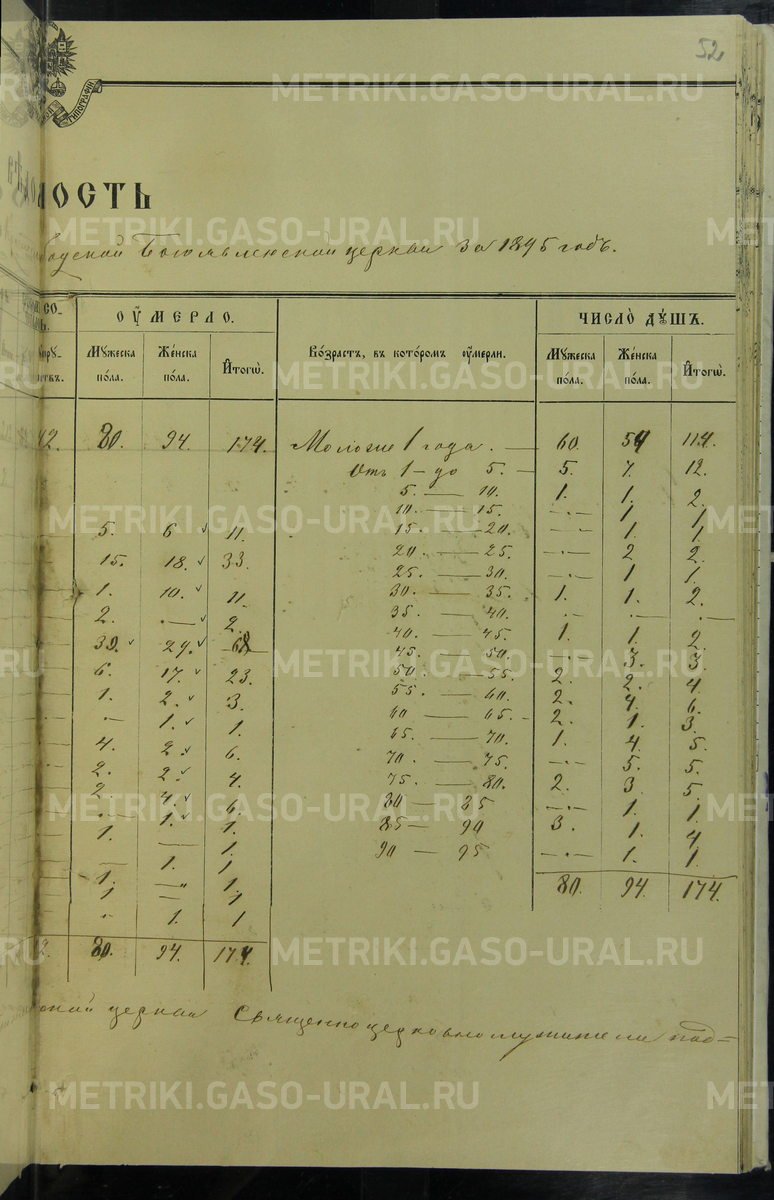 52
ТИПОГРАФІИ
МОСТЬ
Богоявленской церкви за 1895 годъ.
ОУМЕРЛО.
ЧИСЛО ДУШЪ.
Мужеска пола.
Женска пола.
Итогѡ.
Возрастъ, въ которомъ оумерли.
Мужеска пола.
Женска пола.
Итогѡ.
42. 80. 94. 174. Моложе 1 года. — 60. 54 114.
Отъ 1 — до 5. — 5. 7. 12.
5. — 10. 1. 1. 2.
10. — 15. — 1. 1
5. 6 11. 15. — 20. — 1. 1.
15. 18. 33. 20. — 25. — 2 2.
1. 10. 11 25. — 30. — 1 1
2. — 2. 30. — 35. 1. 1. 2.
35. — 40. . . .
39. 29. 68 40. — 45. 1. 1. 2.
6. 17. 23. 45. — 50. — 3. 3.
1. 2. 3. 50. — 55. 2. 2. 4.
— 1. 1. 55. — 60. 2. 4. 6.
4. 2. 6. 60 — 65. - 2. 1. 3.
2. 2. 4. 65. — 70. 1. 4. 5.
2. 4. 6. 70. — 75. — 5. 5.
. 1. 1. 75. — 80. 2. 3 5.
1. — 1. 80 — 85 — 1. 1.
— 1. 1 85 — 90 3. 1. 4
1. — 1. 90 — 95 — 1. 1.
1 — 1 80. 94. 174.
" 1. 1
2. 80. 94. 174.
церкви Священно церковнослужители под=
METRIKI.GASO-URAL.RU